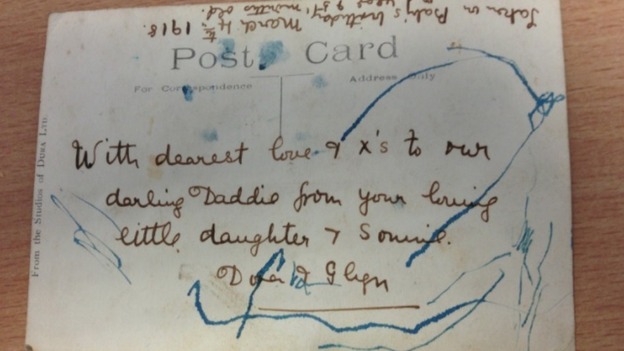 Taken on Baby's birthday March 4th 1918.
1 year & 5½ months old.
Post Card
For Correspondence
Address Only
From the Studios of Dura Ltd.
With dearest love & x's to our
darling Daddie from your loving
little daughter & Sonnie.
Dora & Glyn